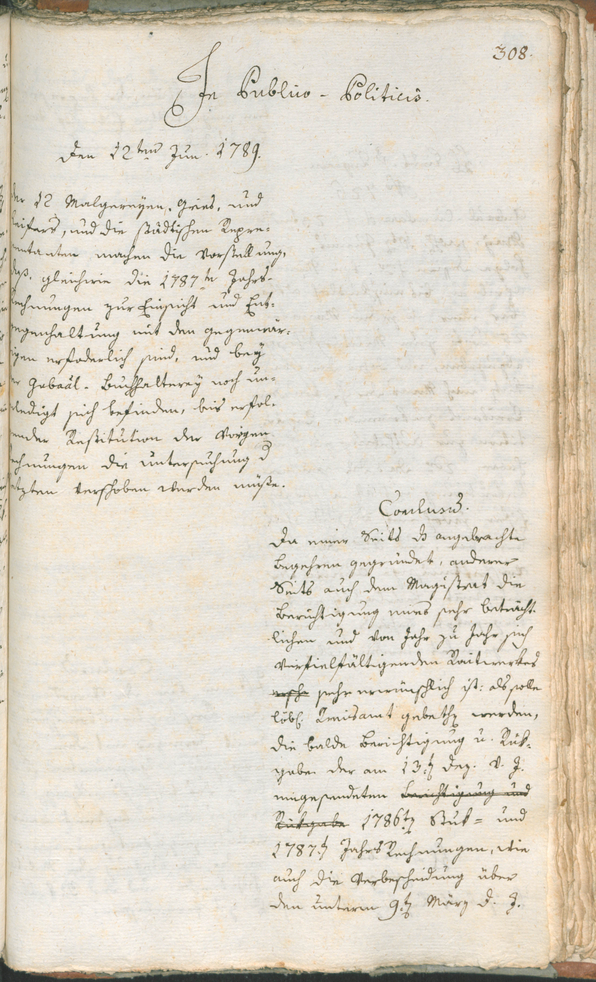 308.
In Publico-Politicis.
Den 12ten Jun. 1789.
der 12 Malgereyen, Gries, und
und die städtischen Repre-
sentanten machen die Vorstellung,
daß, gleichwie die 1787te Jahrs-
rechnungen zur Einsicht und Ent-
gegenhaltung mit den gegenwär-
tigen erfoderlich sind, und bey
der Gubaäl-Buchhalterey noch un-
erledigt sich befinden, bis erfol-
gender Restitution der Vorigen
Rechnungen die Untersuchung d
letzten verschoben werden müße.
Conclusum.
Da einer Seits das angebrachte
Begehren gegründet, anderer
Seits auch dem Magistrat die
Berichtigung eines sehr beträcht-
lichen und von Jahr zu Jahr sich
vervielfältigenden Raitwerkes
sehr erwünschlich ist: als solle
löbl. Kreisamt gebethen werden,
die balde Berichtigung u. Rük-
gabe der am 13ten Dez. v. J.
eingesendeten Berichtigung und
Rükgabe 1786ten Stuk- und
1787ten JahrsRechnungen, wie
auch die Verbescheidung über
den unterm 9ten März d. J.